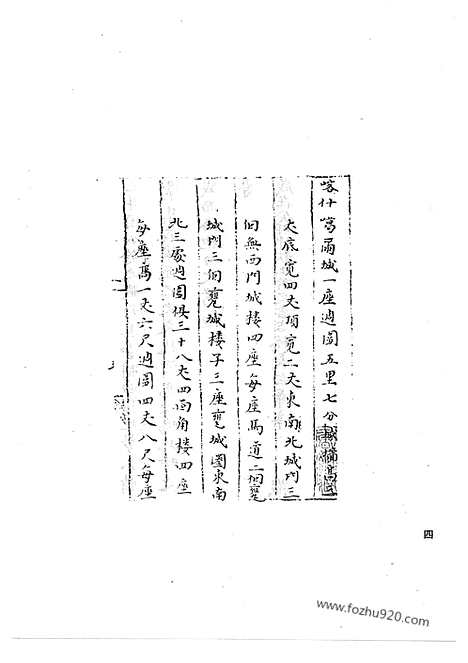 喀什噶爾城一座週圍五里七分城牆高
大底寬四丈頂寬二丈東南北城門三
個無西門城樓四座每座馬道二個甕
城門三個甕城樓子三座甕城圍東南
北三處週圍俱三十八丈四面角樓四座
每座高一丈六尺週圍四丈八尺每座
四
www.fozhu920.com